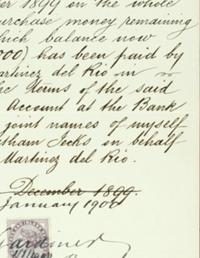 ber 1899 in the whole
purchase money remaining
which balance now
000) has been paid by
artinez del Rio in
he terms of the said
Account at the Bank
joint names of myself
tham Jecks in behalf
Martinez del Rio.
December 1899.
January 1900